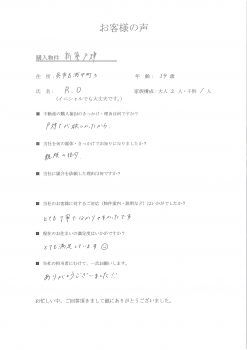 お客様の声
購入物件 新築戸建
住所：
年齢：29歳
氏名：R.O
家族構成：大人2人・子供1人
(イニシャルでも大丈夫です。)
■ 不動産の購入検討のきっかけ・理由は何ですか？
戸建てが欲しかったから
■ 当社を何の媒体・きっかけでお知りになりましたか？
親族の紹介
■ 当社に紹介を依頼した理由は何ですか？
■ お客様の対応に対するご対応（物件案内・説明など）はいかがでしたか？
とても丁寧で分かりやすかったです
■ 現在のお住まいの満足度はいかがですか？
とても満足しています
■ 当社の担当者にむけて、一言お願いします。
ありがとうございました！！
お忙しい中、ご回答頂きまして誠にありがとうございました。